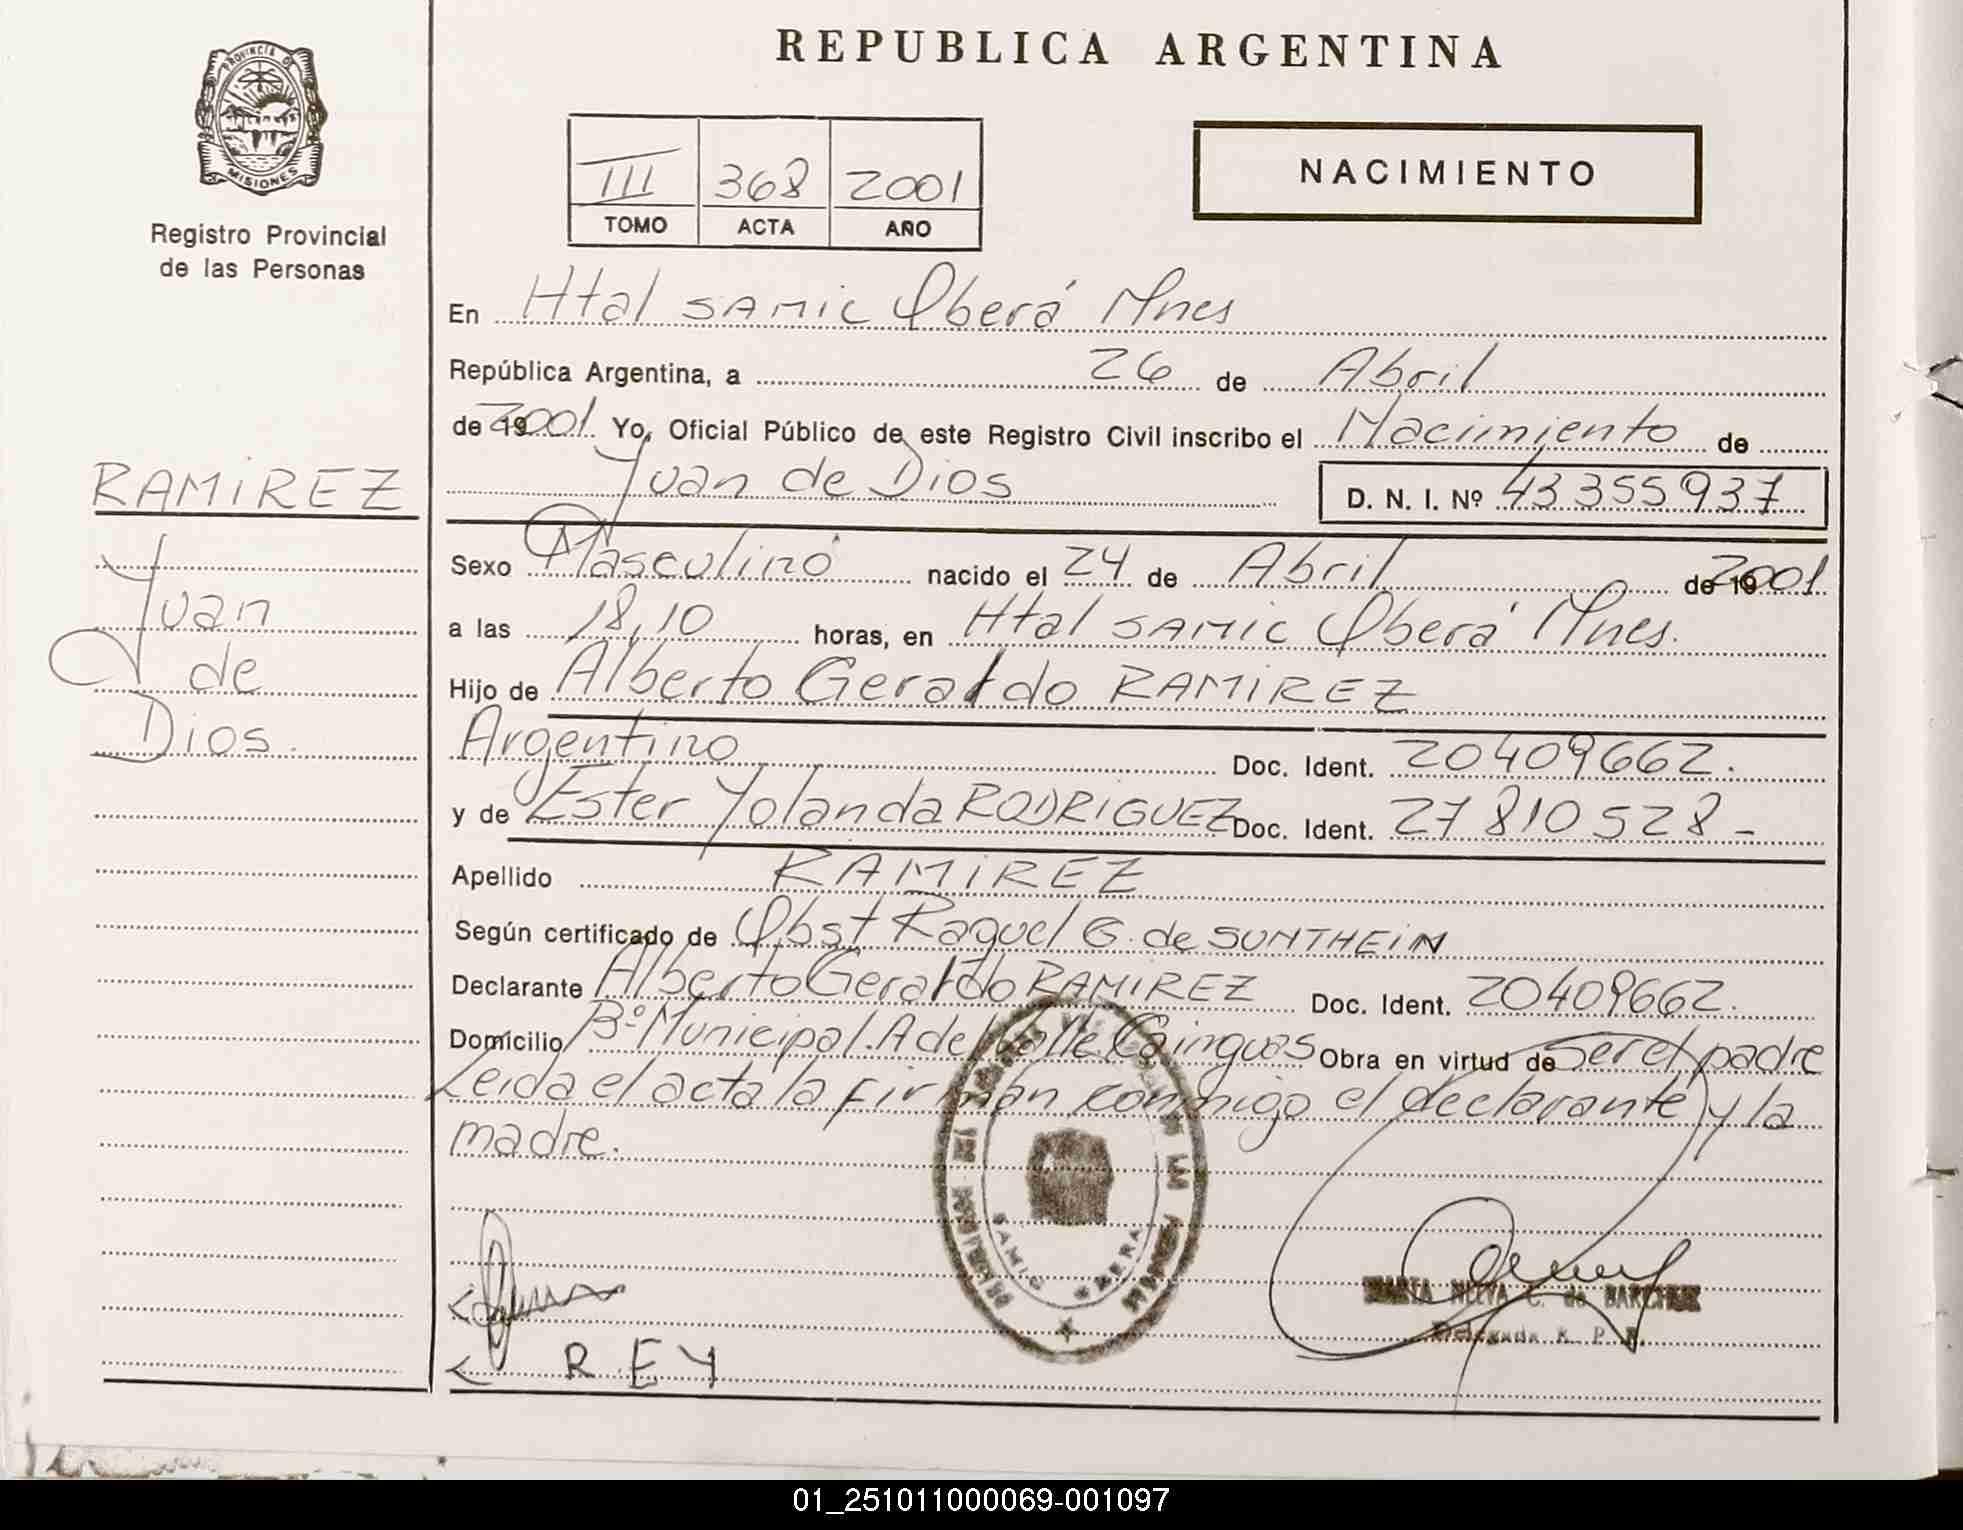 REPUBLICA ARGENTINA
PROVINCIA DE
MISIONES
Registro Provincial
de las Personas
III 368 2001
TOMO ACTA AÑO
NACIMIENTO
En Htal SAMIC Oberá Mnes
República Argentina, a 26 de Abril
de 19 2001 Yo, Oficial Público de este Registro Civil inscribo el Nacimiento de
Juan de Dios D. N. I. Nº 43355937
RAMIREZ
Juan
de
Dios.
Sexo Masculino nacido el 24 de Abril de 19 2001
a las 18,10 horas, en Htal SAMIC Oberá Mnes.
Hijo de Alberto Geraldo RAMIREZ
Argentino Doc. Ident. 20409662.
y de Ester Yolanda RODRIGUEZ Doc. Ident. 27810528-
Apellido RAMIREZ
Según certificado de Obst Raquel G. de SUNTHEIM
Declarante Alberto Geraldo RAMIREZ Doc. Ident. 20409662.
Domicilio Bº Municipal. A del Valle Cainguas Obra en virtud de ser el padre
Leida el acta la firman conmigo el declarante y la
madre.
SAMIC OBERA
MARTA C. de
Delegada R. P. P.
REY
01_251011000069-001097